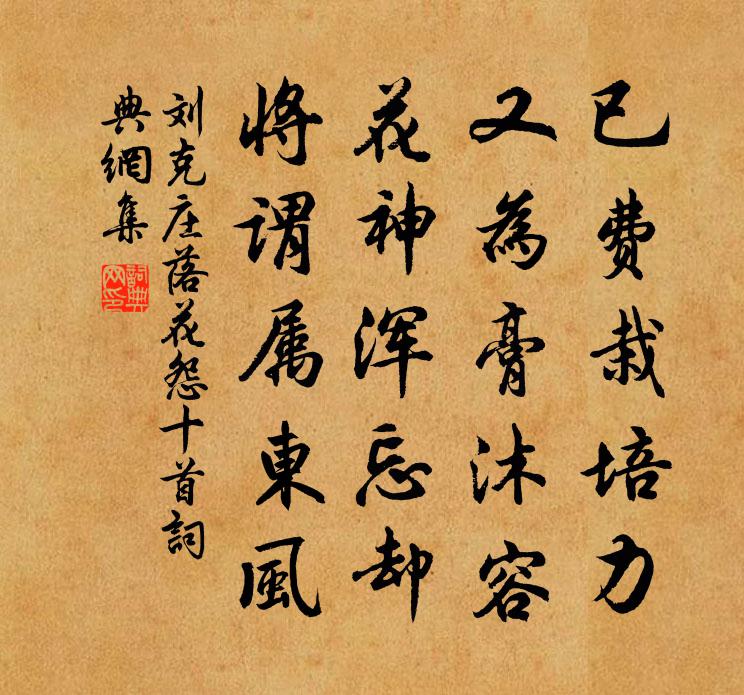 已费栽培力
又為膏沐容
花神浑忘却
将谓属東風
刘克庄落花怨十首詞
典網集
詞典网印